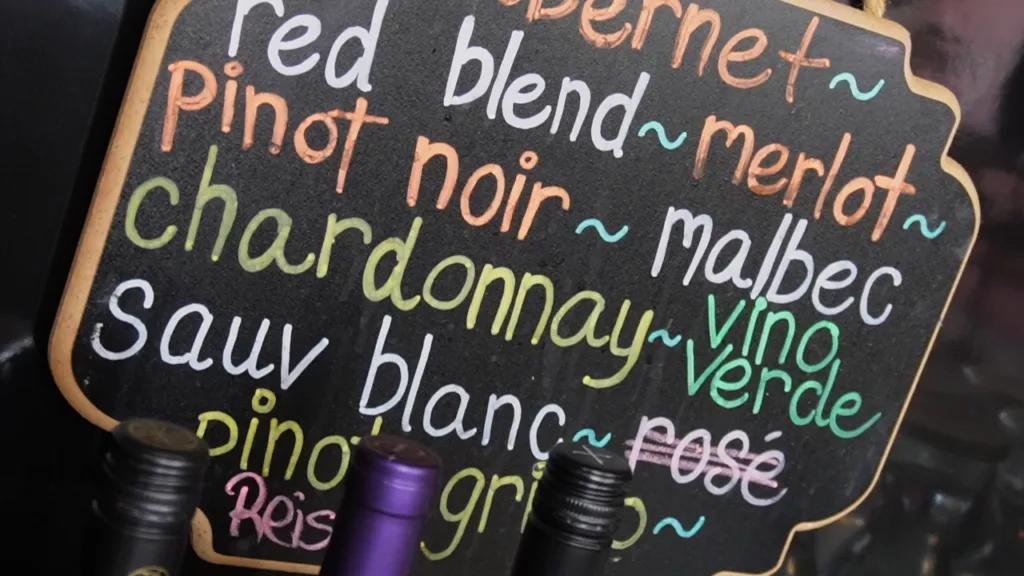 bernet ~
red blend ~ merlot ~
pinot noir ~ malbec
chardonnay ~ vino verde
sauv blanc ~ rosé
pinot gri o ~
Reis